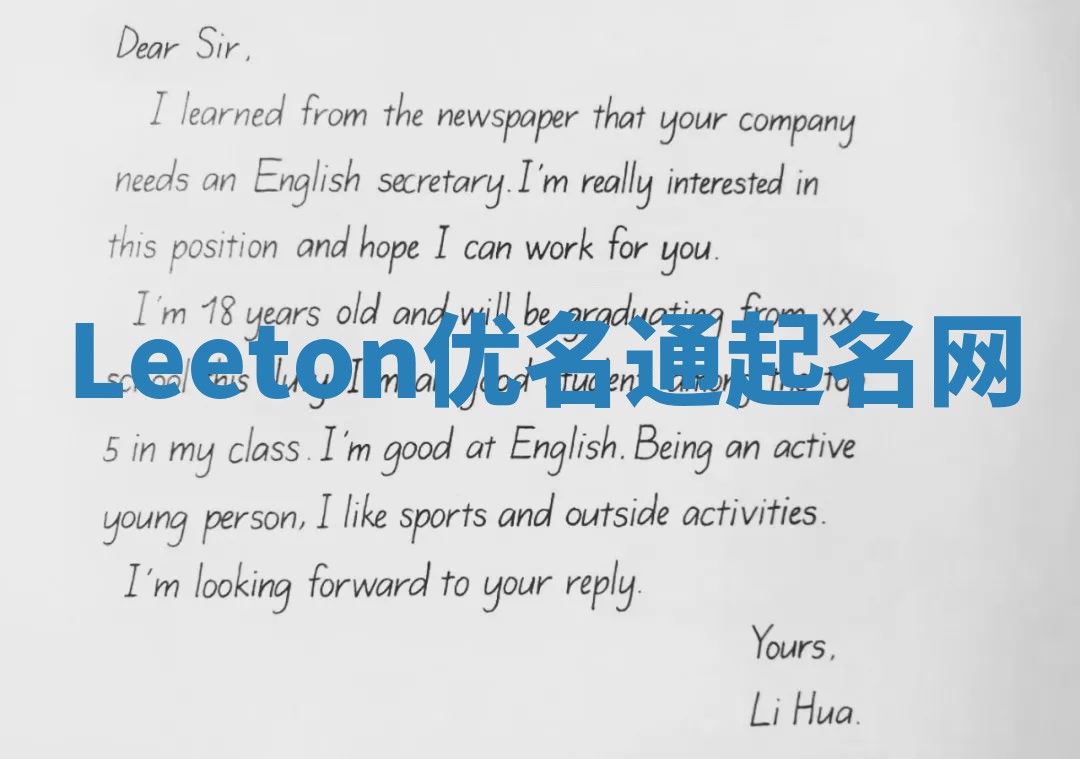 Dear Sir,
I learned from the newspaper that your company
needs an English secretary. I'm really interested in
this position and hope I can work for you.
I'm 18 years old and will be graduating from xx
Leeton优名通起名网
school this July. I'm a good student among the top
5 in my class. I'm good at English. Being an active
young person, I like sports and outside activities.
I'm looking forward to your reply.
Yours,
Li Hua.